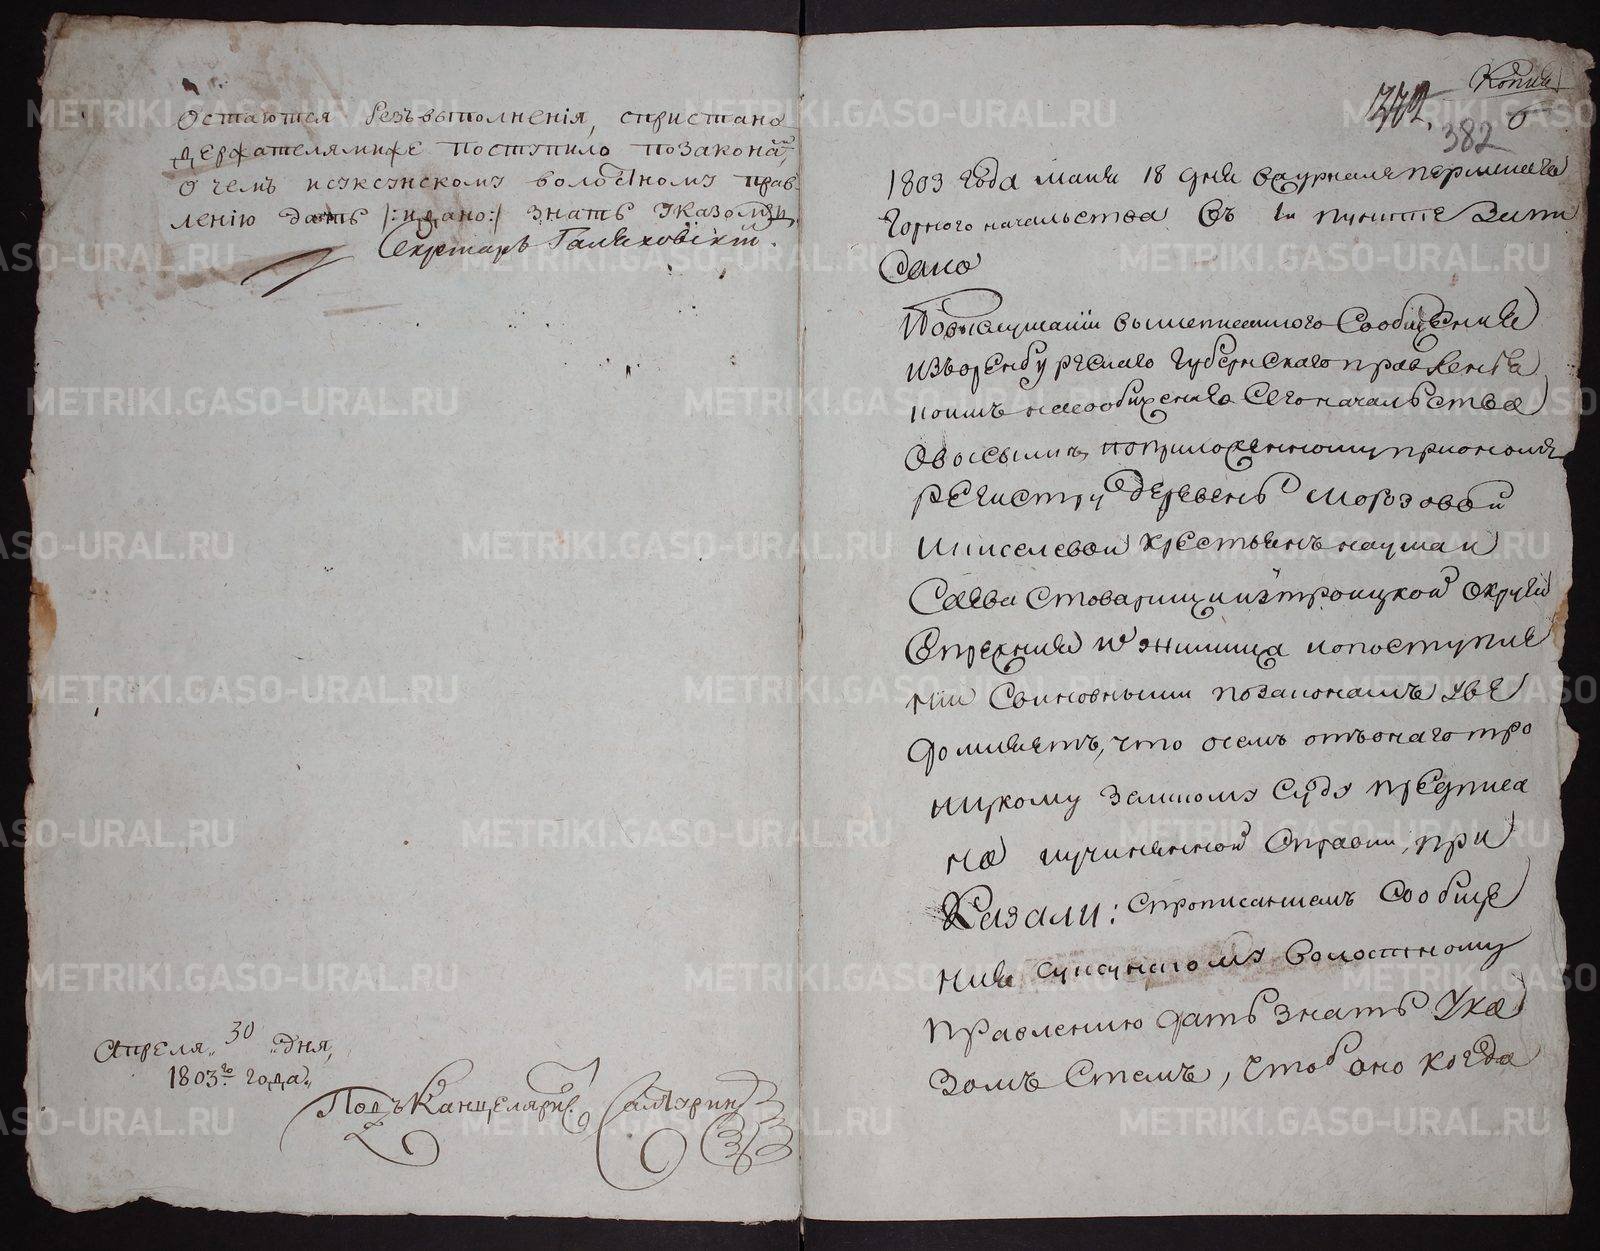 остаются безъ выполненія, спристано
держателямиже поступило позакона,
о чемъ исуксунскому волостному прав
ленію дать /:идано:/ знать указомъ,
Секретарь Галяховскій.
Апреля 30 дня,
1803го года.
ПодъКанцелярис. Самаринъ
Копия
382
1803 года маия 18 дня вжурнале пермскаго
Горного начальства въ пункте запи
сано
Повыслушании вышеписанного Сообщения
изъоренбургскаго губернскаго правления
коимъ насообщение Сегоначальства
овысылке поприложенному приономъ
регистру деревень Морозовой
Икиселевой крестьянъ
Савва стоварищи изтроицкой округи
Стрехния и попоступле
нии свиновными позаконамъ уве
домляетъ, что осемъ отъонаго тро
ицкому земскому суду предписа
но иучиненной справки, при
Казали: спрописаниемъ сообще
ния суксунскому волостному
правлению дать знать Ука
зомъ стемъ, чтоб оно когда